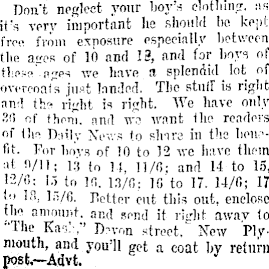 Don't neglect your boy's clothing. as
it's very important he should be kept
free from exposure especially between
the ages of 10 and 12, and for boys of
these ages we have a splendid lot of
overcoats just landed. The stuff is right
and the right is right. We have only
36 of them. and we want the readers
of the Daily News to share in the bene-
fit. For boys of 10 to 12 we have them
at 9/11; 13 to 14, 11/6; and 14 to 15,
12/6; 15 to 16, 13/6; 16 to 17. 14/6; 17
to 18, 15/6. Better cut this out, enclose
the amount, and send it right away to
"The Kash," Devon street, New Ply-
mouth, and you'll get a coat by return
post.—Advt.